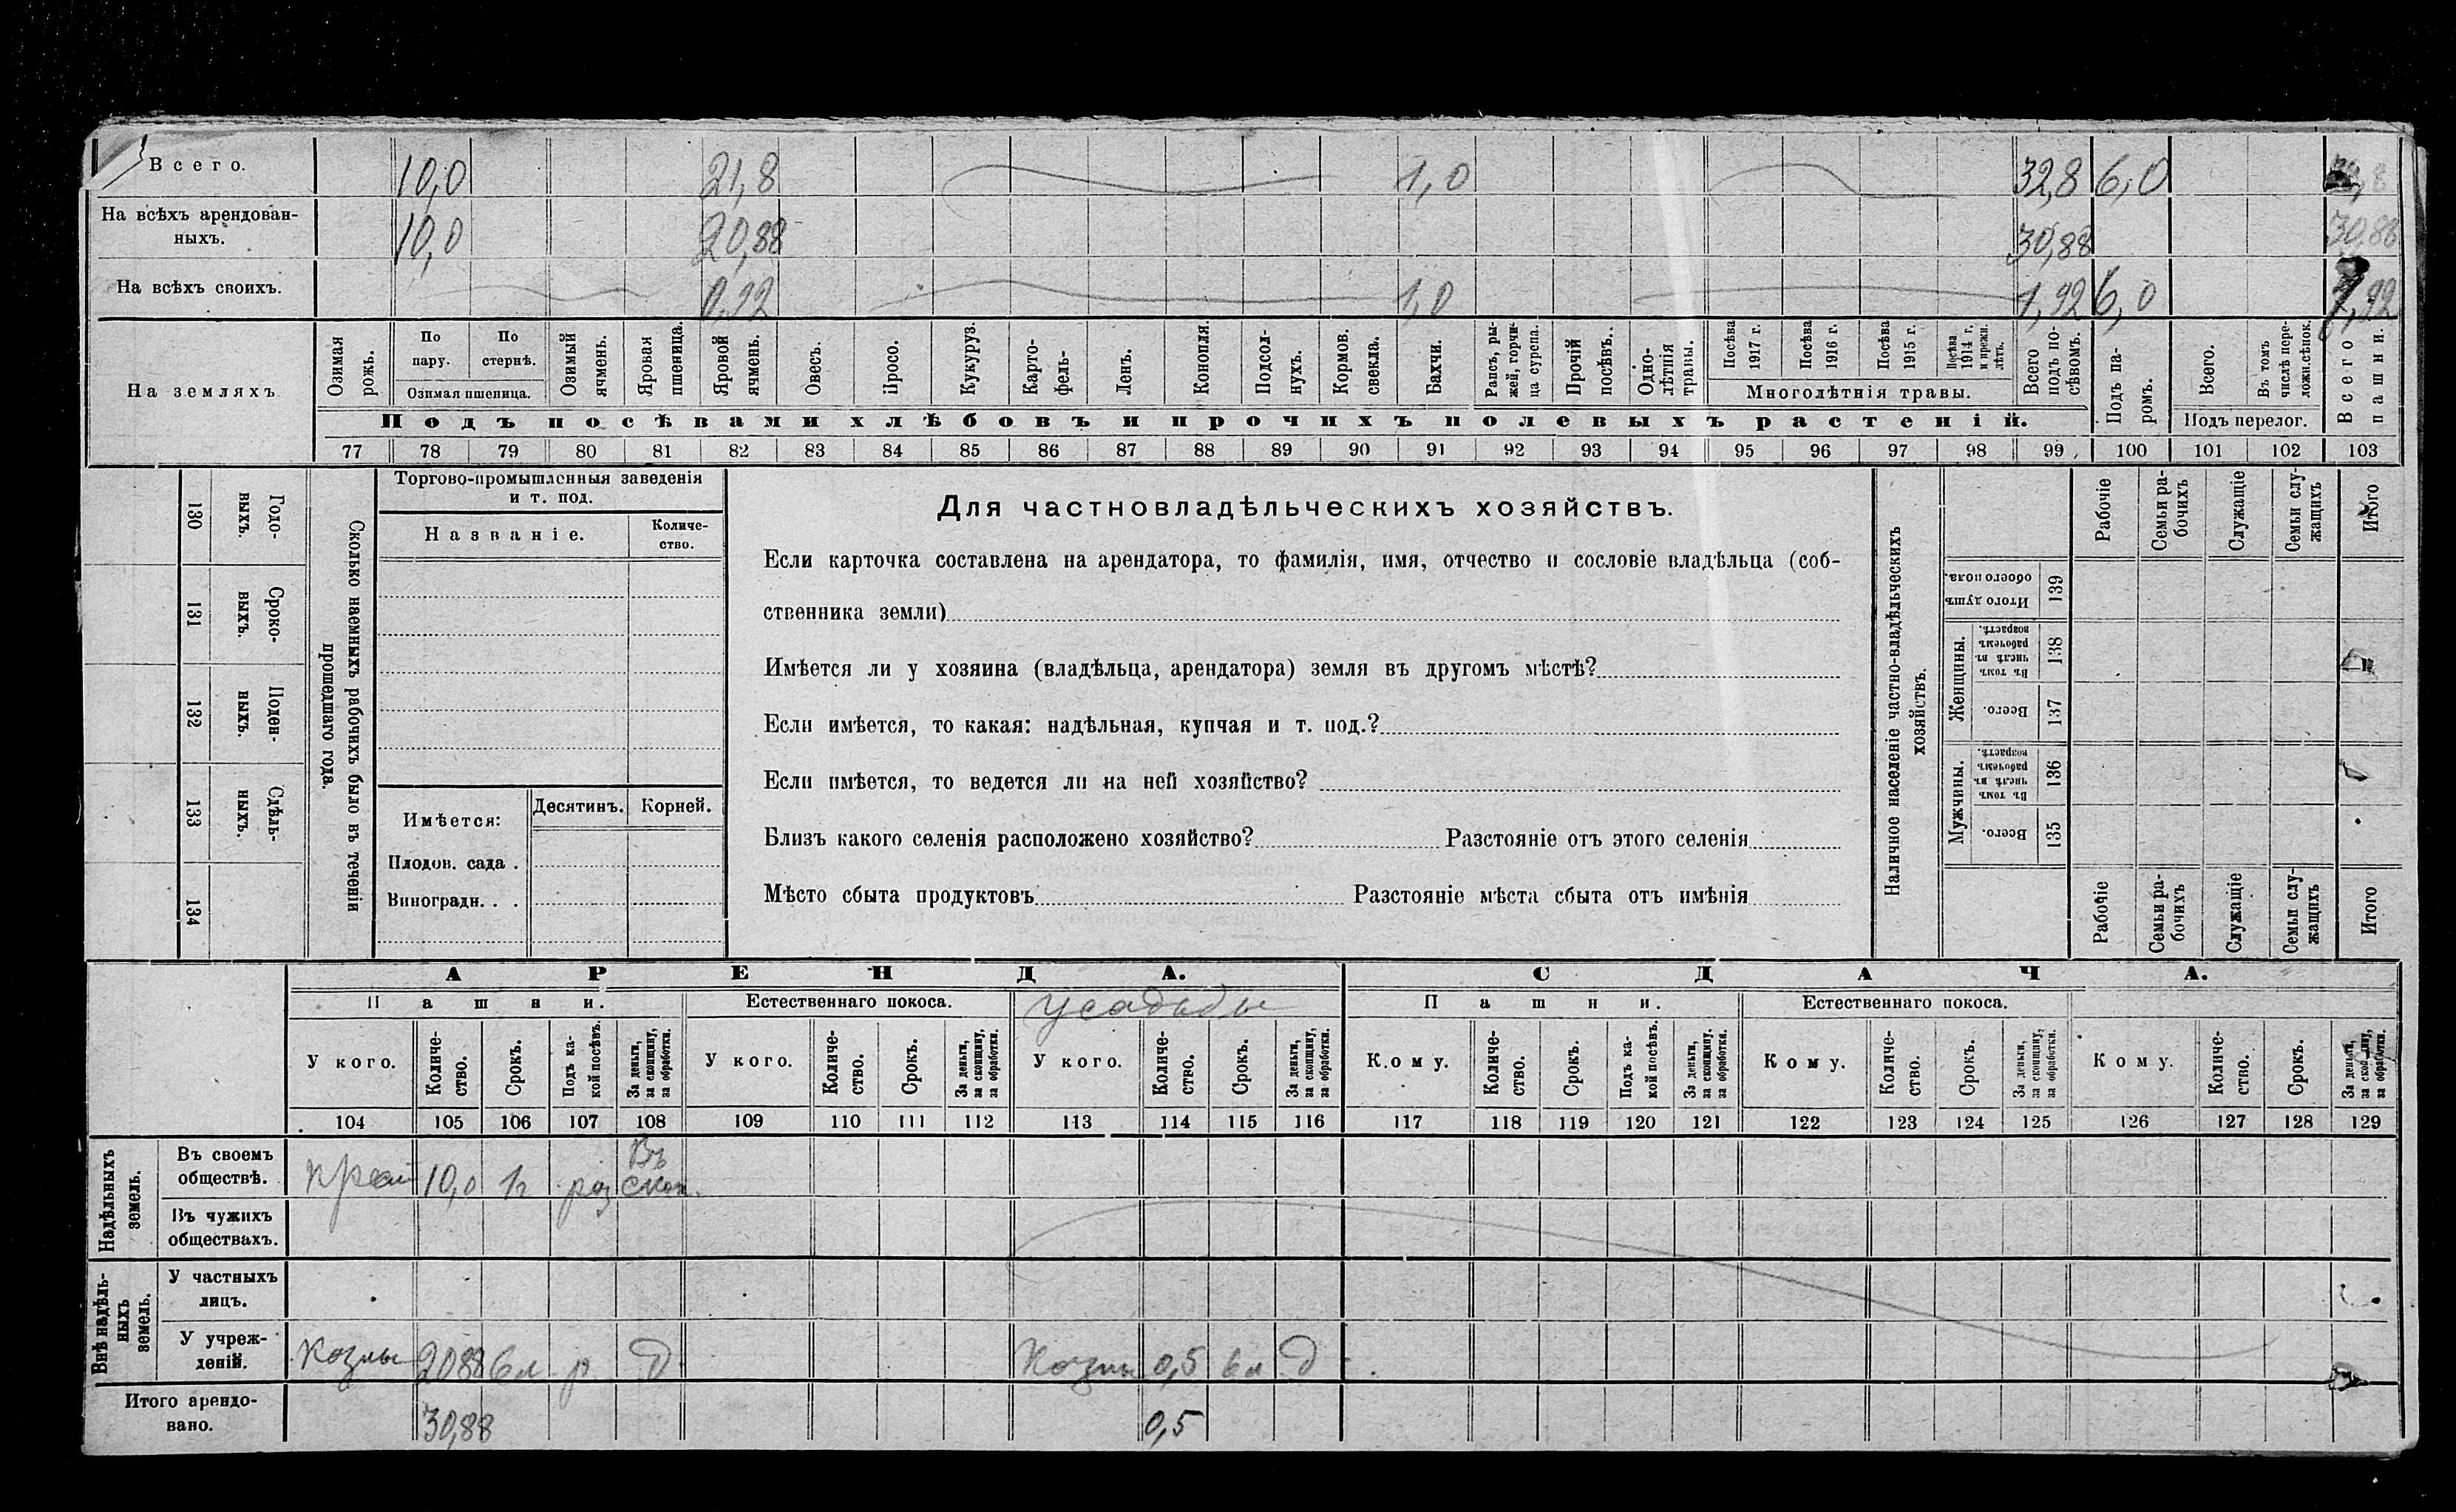 Всего. 10,0 21,8 1,0 32,8 6,0
На всѣхъ арендован-
ныхъ. 10,0 20,88 30,88 30,88
На всѣхъ своихъ. 0,92 1,0 1,92 6,0 7,92
На земляхъ
Озимая
рожь.
По
пару.
По
стернѣ.
Озимая пшеница.
Озимый
ячмень.
Яровая
пшеница.
Яровой
ячмень.
Овесъ.
Просо.
Кукуруз.
Карто-
фель-
Ленъ.
Конопля.
Подсол-
нухъ.
Кормов.
свекла.
Бахчи.
Рапсъ, ры-
жей, горчи-
ца сурепа.
Прочій
посѣвъ.
Одно-
лѣтнія
травы.
Посѣва
1917 г.
Посѣва
1916 г.
Посѣва
1915 г.
Посѣва
1914 г.
и прежн.
лѣтъ.
Многолѣтнія травы.
Всего
подъ по-
сѣвомъ.
Подъ па-
ромъ.
Всего.
Въ томъ
числѣ пере-
ложн.сѣнок.
Подъ перелог.
Всего
пашни.
Подъ посѣвами хлѣбовъ и прочихъ полевыхъ растеній.
77 78 79 80 81 82 83 84 85 86 87 88 89 90 91 92 93 94 95 96 97 98 99 100 101 102 103
130
Годо-
выхъ.
131
Сроко-
выхъ.
132
Поден-
ныхъ.
133
Сдѣль-
ныхъ.
134
Сколько наемныхъ рабочихъ было въ теченіи
прошедшаго года.
Торгово-промышленныя заведенія
и т. под.
Названіе.
Количе-
ство.
Имѣется:
Десятинъ. Корней.
Плодов. сада .
Виноградн. . .
Для частновладѣльческихъ хозяйствъ.
Если карточка составлена на арендатора, то фамилія, имя, отчество и сословіе владѣльца (соб-
ственника земли)
Имѣется ли у хозяина (владѣльца, арендатора) земля въ другомъ мѣстѣ?
Если имѣется, то какая: надѣльная, купчая и т. под.?
Если имѣется, то ведется ли на ней хозяйство?
Близъ какого селенія расположено хозяйство? Разстояніе отъ этого селенія
Мѣсто сбыта продуктовъ Разстояніе мѣста сбыта отъ имѣнія
Наличное населеніе частно-владѣльческихъ
хозяйствъ.
Рабочіе
Семьи ра-
бочихъ
Служащіе
Семьи слу-
жащихъ
Итого
Итого душъ
обоего пола.
139
Женщины.
Въ томъ
числѣ въ
рабочемъ
возрастѣ.
138
Всего.
137
Мужчины.
Въ томъ
числѣ въ
рабочемъ
возрастѣ.
136
Всего.
135
Рабочіе
Семьи ра-
бочихъ
Служащіе
Семьи слу-
жащихъ
Итого
АРЕНДА. СДАЧА.
Пашни. Естественнаго покоса. усадьбы Пашни. Естественнаго покоса.
У кого.
Количе-
ство.
Срокъ.
Подъ ка-
кой посѣвъ.
За деньги,
за скопщину,
за обработки.
У кого.
Количе-
ство.
Срокъ.
За деньги,
за скопщину,
за обработки.
У кого.
Количе-
ство.
Срокъ.
За деньги,
за скопщину,
за обработки.
Кому.
Количе-
ство.
Срокъ.
Подъ ка-
кой посѣвъ.
За деньги,
за скопщину,
за обработки.
Кому.
Количе-
ство.
Срокъ.
За деньги,
за скопщину,
за обработки.
Кому.
Количе-
ство.
Срокъ.
За деньги,
за скопщину,
за обработки.
104 105 106 107 108 109 110 111 112 113 114 115 116 117 118 119 120 121 122 123 124 125 126 127 128 129
Надѣльныхъ
земель.
Въ своемъ
обществѣ. 10,0 1г раз Въ
скоп.
Въ чужихъ
обществахъ.
Внѣ надѣль-
ныхъ
земель.
У частныхъ
лицъ.
У учреж-
деній. Казны 2088 6л р д Казны 0,5 6л д
Итого арендо-
вано. 30,88 0,5